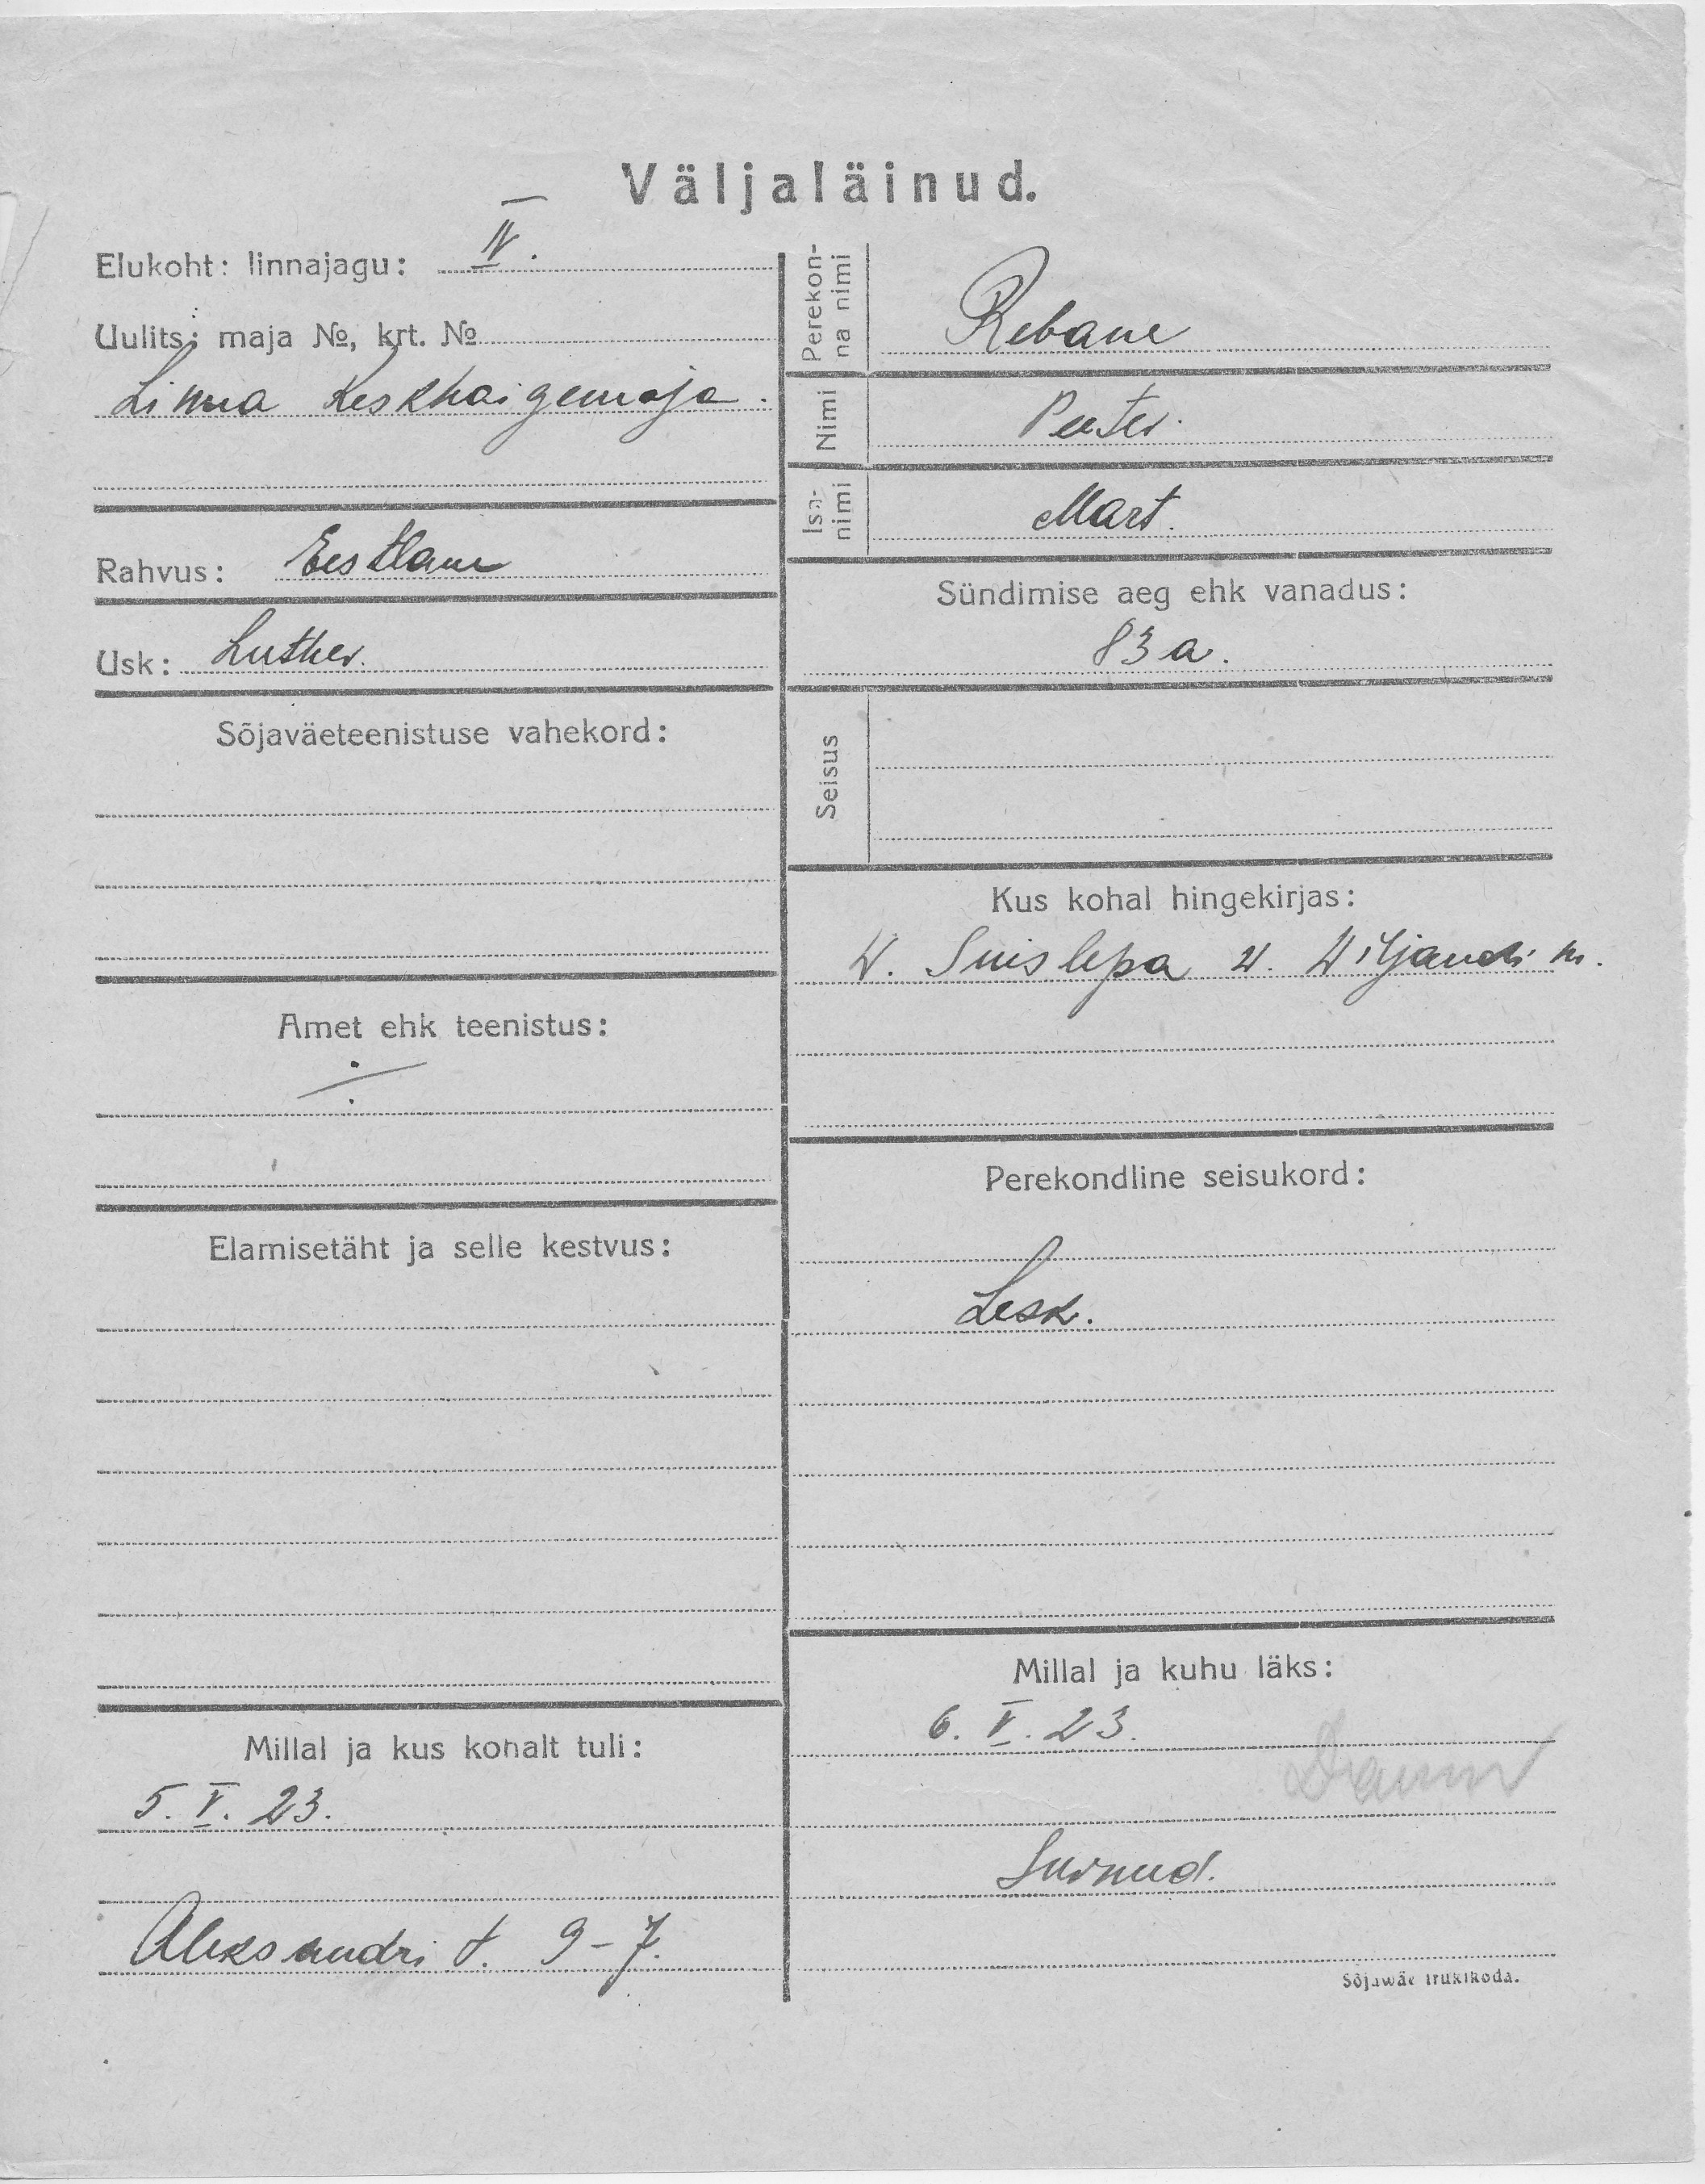 Väljaläinud.
Elukoht: linnajagu: IV.
Uulits: maja №, krt. №
Linna Keskhaigemaja.
Rahvus: Eestlane
Usk: Luther.
Sõjaväeteenistuse vahekord:
Amet ehk teenistus:
÷
Elamisetäht ja selle kestvus:
Millal ja kus kohalt tuli:
5. V. 23.
Aleksandri t. 9-7.
Perekon-
na nimi
Rebane
Nimi
Peeter.
Isa-
nimi
Mart.
Sündimise aeg ehk vanadus:
83 a.
Seisus
Kus kohal hingekirjas:
W. Suislepa w. Wiljandi m.
Perekondline seisukord:
Lesk.
Millal ja kuhu läks:
6. V. 23.
Surnud.
Sõjawäe trükikoda.